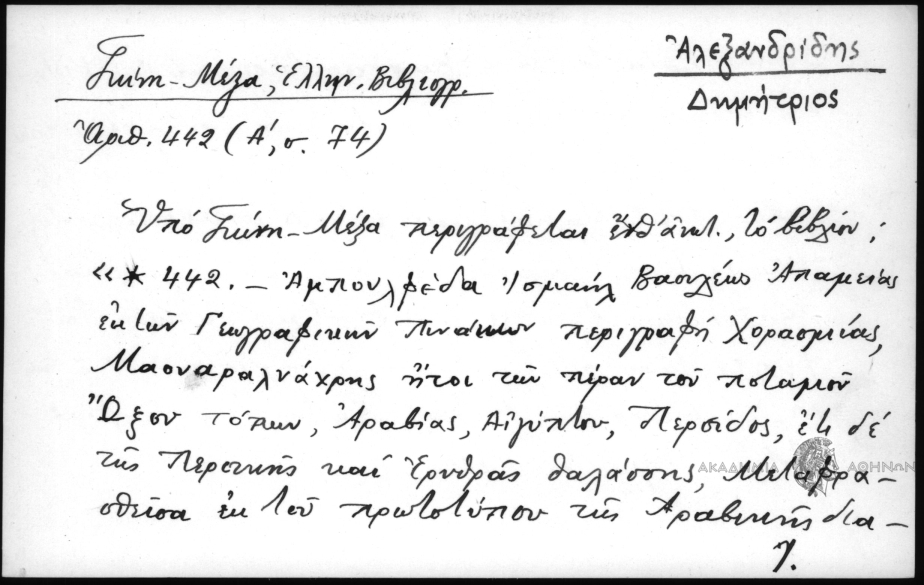 Ἀλεξανδρίδης
Δημήτριος
Γκίνη-Μέξα, Ἑλλην. Βιβλιογρ.
Ἀριθ. 442 (Α΄, σ. 74)
Ὑπό Γκίνη-Μέξα περιγράφεται ἔνθ᾽ ἀνωτ., τό βιβλίον:
«* 442. – Ἀμπουλφέδα Ἰσμαήλ Βασιλέως Ἀπαμείας
ἐκ τῶν Γεωγραφικῶν Πινάκων περιγραφή Χορασμίας,
Μαουαραλνάχρης ἤτοι τῶν πέραν τοῦ ποταμοῦ
Ὤξου τόπων, Ἀραβίας, Αἰγύπτου, Περσίδος, ἔτι δέ
τῆς Περσικῆς καί Ἐρυθρᾶς θαλάσσης, Μεταφρα–
σθεῖσα ἐκ τοῦ πρωτοτύπου τῆς Ἀραβικῆς δια–
ΑΚΑΔΗΜΙΑ ΑΘΗΝΩΝ